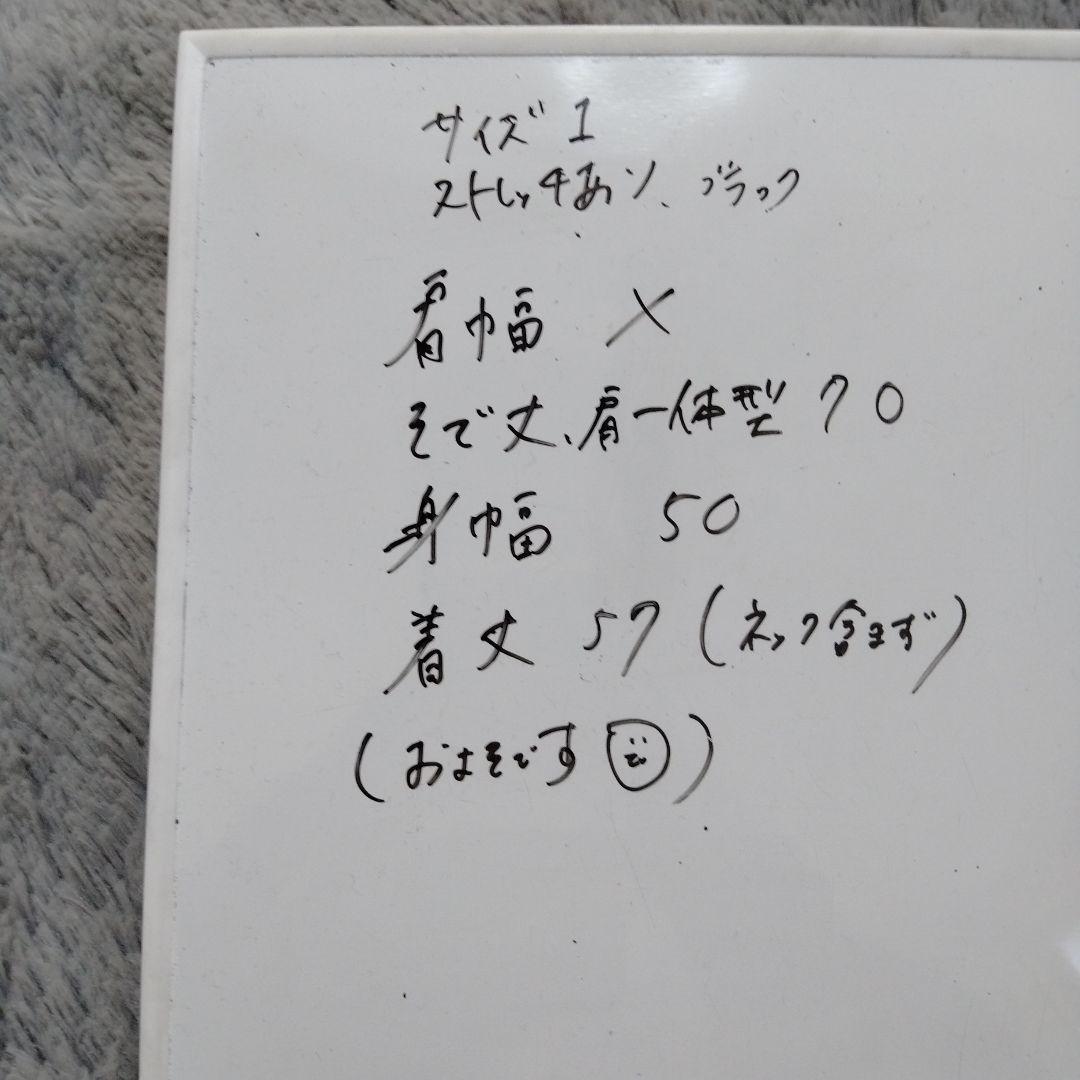 サイズ 1
ストレッチあり、ブラック
肩巾幅 ×
そで丈、肩一体型 70
身巾幅 50
着丈 57(ネック含まず)
(およそです)